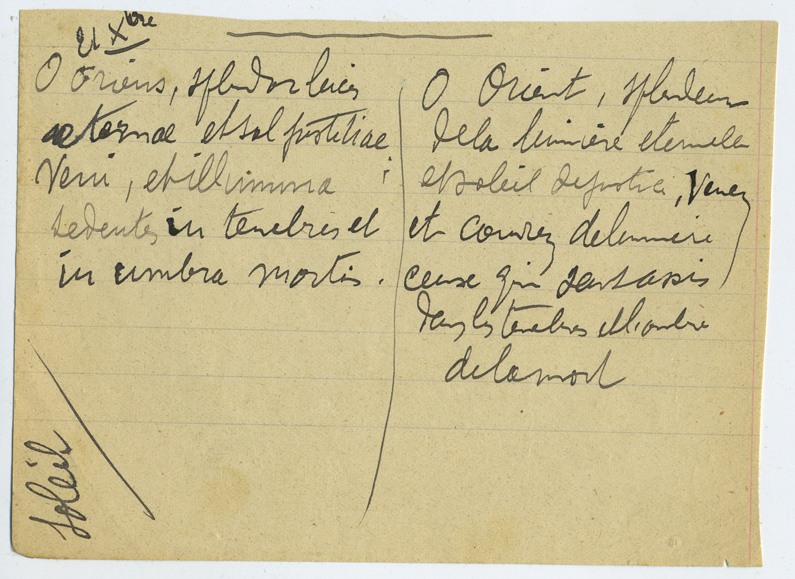 21 Xbre
O Oriens, splendor lucis
aeternae et sol justitiae
Veni, et illumina
sedentes in tenebris et
in umbra mortis.
O Orient, splendeur
de la lumière eternelle
et soleil de justice, Venez
et couvrez de lumière
ceux qui sont assis
dans les tenebres et l'ombre
de la mort
Soleil